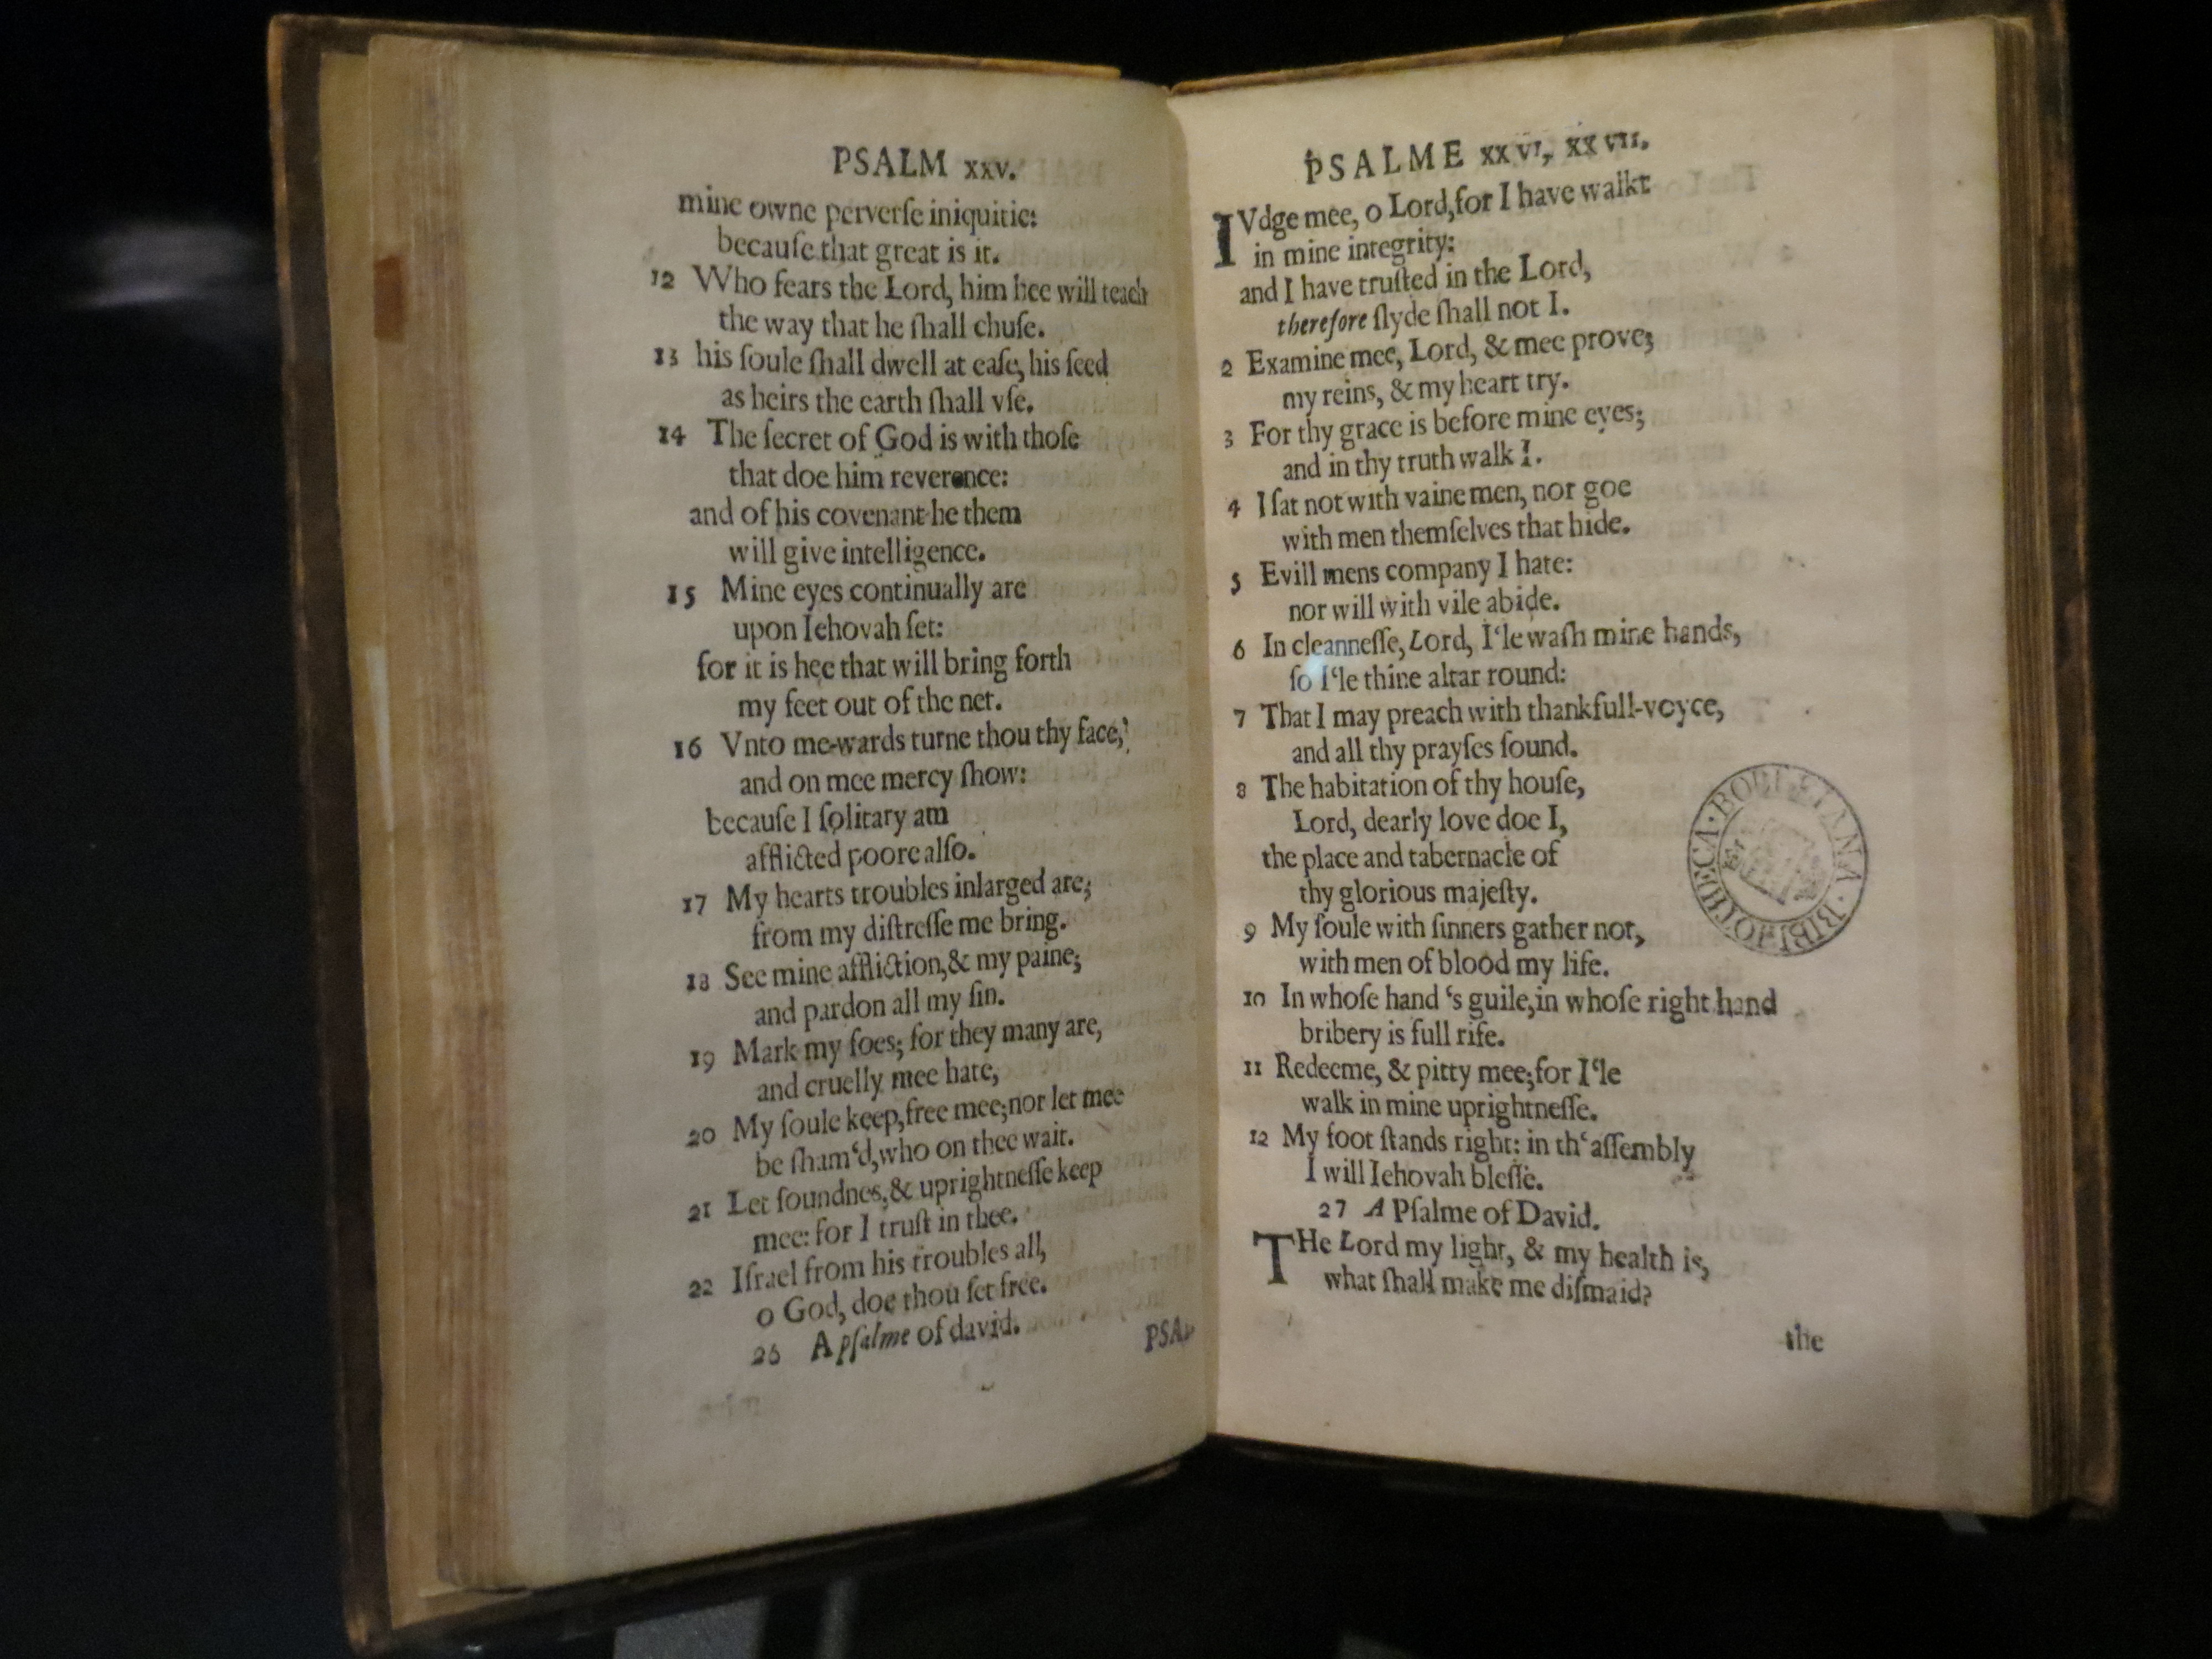 PSALM xxv.
mine owne perverſe iniquitie:
becauſe that great is it.
12 Who fears the Lord, him hee will teach
the way that he ſhall chuſe.
13 his ſoule ſhall dwell at eaſe, his ſeed
as heirs the earth ſhall vſe.
14 The ſecret of God is with thoſe
that doe him reverence:
and of his covenant he them
will give intelligence.
15 Mine eyes continually are
upon Iehovah ſet:
for it is hee that will bring forth
my feet out of the net.
16 Vnto me-wards turne thou thy face,
and on mee mercy ſhow:
becauſe I ſolitary am
afflicted poore alſo.
17 My hearts troubles inlarged are;
from my diſtreſſe me bring.
18 See mine affliction, & my paine;
and pardon all my ſin.
19 Mark my foes; for they many are,
and cruelly mee hate,
20 My ſoule keep, free mee; nor let mee
be ſham‘d, who on thee wait.
21 Let ſoundnes, & uprightneſſe keep
mee: for I truſt in thee.
22 Iſrael from his troubles all,
o God, doe thou ſet free.
26 A pſalme of david.
PSAL
PSALME xxvi, xxvii.
IVdge mee, o Lord, for I have walkt
in mine integrity:
and I have truſted in the Lord,
therefore ſlyde ſhall not I.
2 Examine mee, Lord, & mee prove;
my reins, & my heart try.
3 For thy grace is before mine eyes;
and in thy truth walk I.
4 I ſat not with vaine men, nor goe
with men themſelves that hide.
5 Evill mens company I hate:
nor will with vile abide.
6 In cleanneſſe, Lord, I‘le waſh mine hands,
ſo I‘le thine altar round:
7 That I may preach with thankfull-voyce,
and all thy prayſes ſound.
8 The habitation of thy houſe,
Lord, dearly love doe I,
the place and tabernacle of
thy glorious majeſty.
9 My ſoule with ſinners gather not,
with men of blood my life.
10 In whoſe hand ‘s guile, in whoſe right hand
bribery is full rife.
11 Redeeme, & pitty mee; for I‘le
walk in mine uprightneſſe.
12 My foot ſtands right: in th‘ aſſembly
I will Iehovah bleſſe.
27 A Pſalme of David.
THe Lord my light, & my health is,
what ſhall make me diſmaid?
the
BIBLIOTHECA · BODLEIANA ·